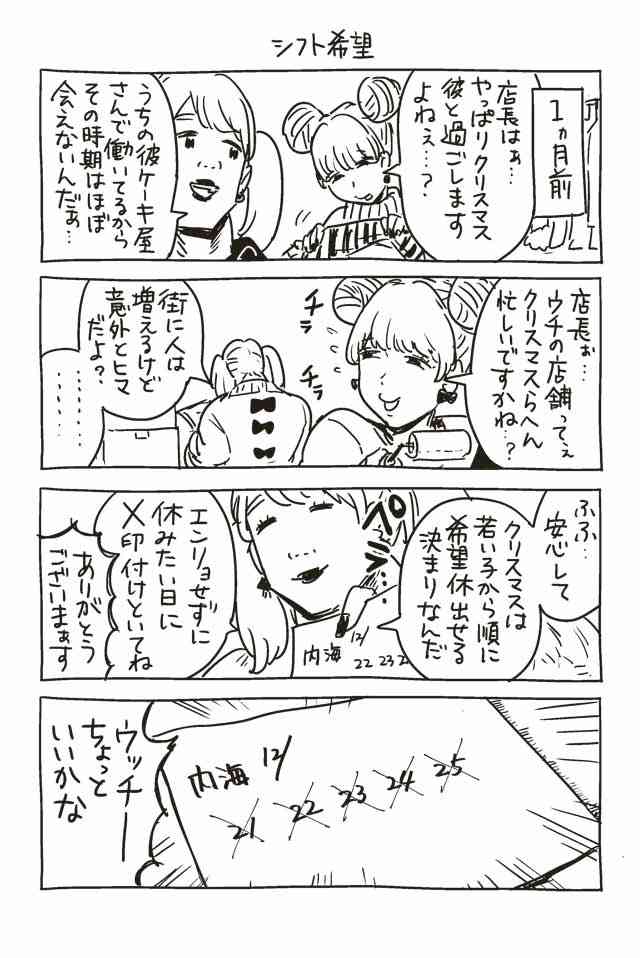 シフト希望
1ヵ月前
店長はぁ…
やっぱりクリスマス
彼と過ごします
よねぇ…?
うちの彼ケーキ屋
さんで働いてるから
その時期はほぼ
会えないんだぁ…
店長ぉ…
ウチの店舗ってぇ
クリスマスらへん
忙しいですかね…?
チラ
チラ
街に人は
増えるけど
意外とヒマ
だよ?
………
………
ふふ…
安心して
クリスマスは
若い子から順に
希望休出せる
決まりなんだ
ペロ…
内海
12/
22 23 2
エンリョせずに
休みたい日に
X印付けといてね
ありがとう
ございまぁす
内海 12/
21 22 23 24 25
ウッチー
ちょっと
いいかな